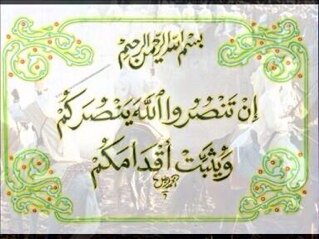 بسم الله الرحمن الرحيم
إن تنصروا الله ينصركم
ويثبت أقدامكم